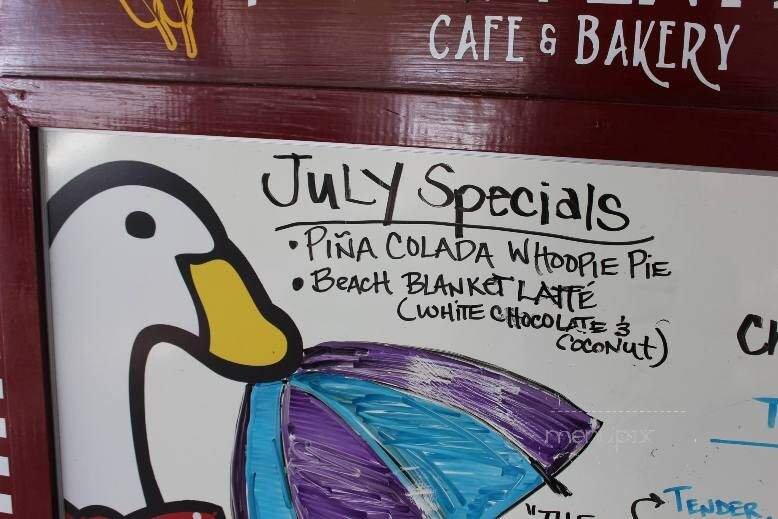 CAFE & BAKERY
JULY Specials
• PIÑA COLADA WHOOPIE PIE
• BEACH BLANKET LATTÉ
(WHITE CHOCOLATE &
COCONUT)
menupix
"THE
TENDER